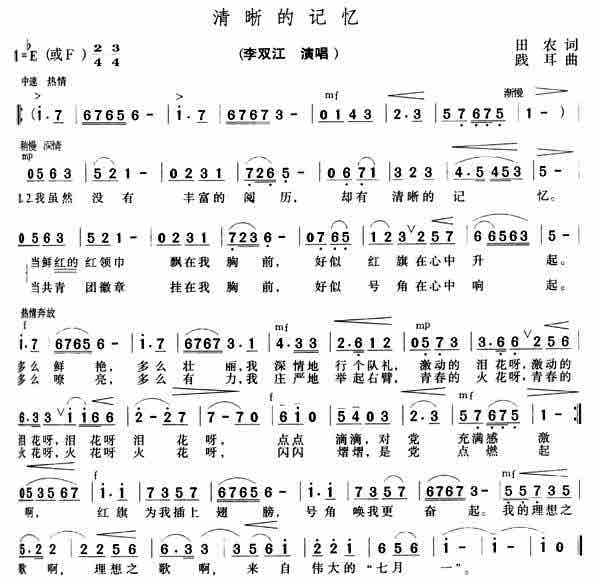 清晰的记忆
1=♭E (或F) 2/4 3/4
(李双江 演唱)
田农词
践耳曲
中速 热情
mf
渐慢
(i.7 67656- i.7 67673- 0143 2.3 57675 1-)
稍慢 深情
mp
0563 521- 0231 7265- 0671 323 4.5453 5-
1.2.我虽然 没有 丰富的 阅历, 却有 清晰的 记 忆。
0563 521- 0231 7236- 0765 123∨257 66563 5-
当鲜红的 红领巾 飘在我 胸前, 好似 红旗在心中 升 起。
当共青 团徽章 挂在我 胸前, 好似 号角在心中 响 起。
热情奔放
f
mf
mp
mf
i.7 67656- i.7 67773 4.33 2.612 0573 3.66∨256
多么 鲜 艳, 多么 壮 丽,我 深情地 行个队礼, 激动的 泪花呀,激动的
多么 嘹 亮, 多么 有 力,我 庄严地 举起右臂, 青春的 火花呀,青春的
f
mf
6.33∨ii66 2-27 7-70 6i0 4322 2.3 57675 1-
泪花呀,泪 花呀 泪 花 呀, 点点 滴滴,对 党 充满感 激
火花呀,火 花呀 火 花 呀, 闪闪 熠熠,是 党 点燃 起
f
mf
053567 i.i 7357 6765- i.i 7357 6765- 3.3 55735
啊, 红旗 为我插上 翅 膀, 号角 唤我更 奋 起。我的 理想之
5.22 2256 2- 3.i i.i 2i57 i- i-
歌啊, 理想之 歌啊, 来自 伟大的“七月 一”。